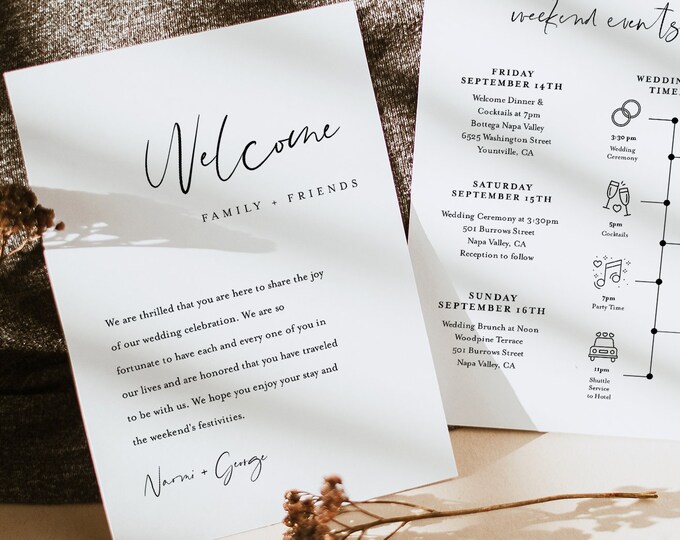 Welcome
FAMILY + FRIENDS
We are thrilled that you are here to share the joy
of our wedding celebration. We are so
fortunate to have each and every one of you in
our lives and are honored that you have traveled
to be with us. We hope you enjoy your stay and
the weekend's festivities.
Naomi + George
weekend events
FRIDAY
SEPTEMBER 14TH
Welcome Dinner &
Cocktails at 7pm
Bottega Napa Valley
6525 Washington Street
Yountville, CA
SATURDAY
SEPTEMBER 15TH
Wedding Ceremony at 3:30pm
501 Burrows Street
Napa Valley, CA
Reception to follow
SUNDAY
SEPTEMBER 16TH
Wedding Brunch at Noon
Woodpine Terrace
501 Burrows Street
Napa Valley, CA
WEDDIN
TIME
3:30 pm
Wedding
Ceremony
5pm
Cocktails
7pm
Party Time
11pm
Shuttle
Service
to Hotel